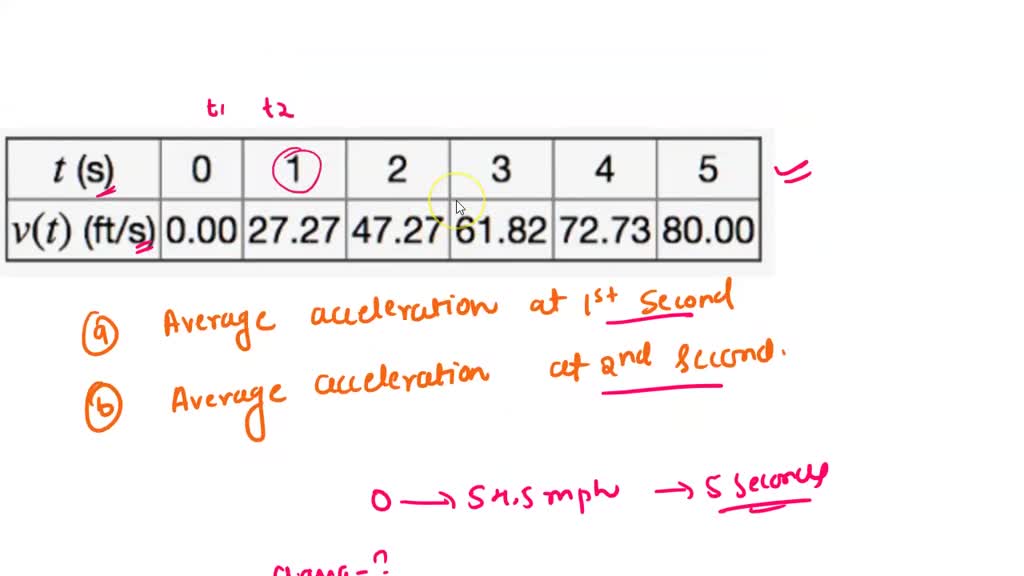 t1 t2
t (s) 0 1 2 3 4 5
v(t) (ft/s) 0.00 27.27 47.27 61.82 72.73 80.00
a Average acceleration at 1st second
b Average acceleration at 2nd second.
0 → 54.5 mph → 5 seconds